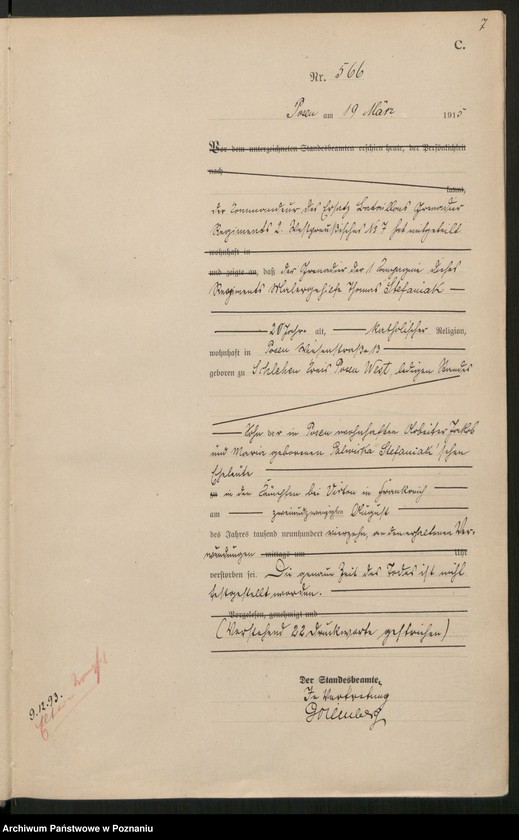 7
C.
Nr. 566
Posen am 19 März 1915
Vor dem unterzeichneten Standesbeamten erschien heute, der Persönlichkeit
nach
kannt,
der Kommandeur des Ersatz Bataillons Grenadier
Regiments 2. Westpreußisches No 7 hat mitgeteilt
wohnhaft in
und zeigte an, daß der Grenadier der 1 Kompagnie dieses
Regiments Malergehilfe Thomas Stefaniak
20 Jahre alt, katholischer Religion,
wohnhaft in Posen Wiesenstraße 13
geboren zu Schlehen Kreis Posen West, ledigen Standes
Sohn der in Posen wohnhaften Arbeiter Jakob
und Maria geborenen Stefaniak'schen
Eheleute
in den Kämpfen bei Virton in Frankreich
am zweiundzwanzigsten August
des Jahres tausend neunhundert vierzehn, an den erhaltenen Ver-
wundungen mittags um Uhr
verstorben sei. Die genaue Zeit des Todes ist nicht
festgestellt worden.
Vorgelesen, genehmigt und
(Vorstehend 22 Druckworte gestrichen)
Der Standesbeamte,
In Vertretung
9.12.93.
Archiwum Państwowe w Poznaniu